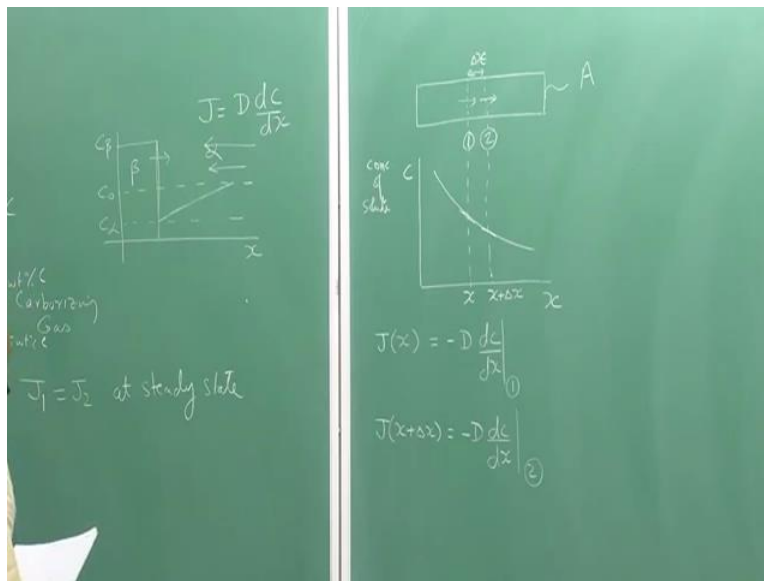 J = D dc/dx
Cβ
β
α
C₀
Cα
x
wt% C
Carburizing
Gas
J₁ = J₂ at steady state
Δx
A
① ②
conc
of
C
x x+Δx x
J(x) = -D dc/dx |①
J(x+Δx) = -D dc/dx |②